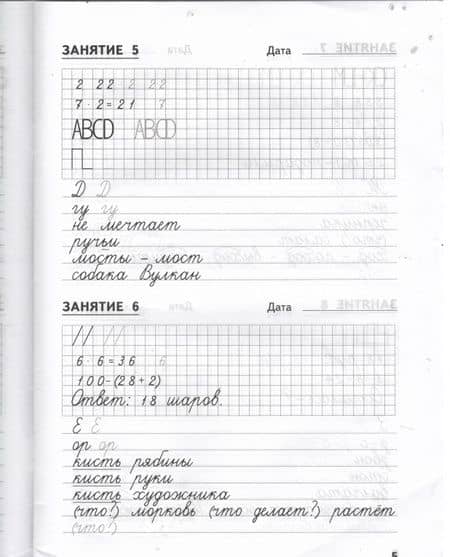 ЗАНЯТИЕ 5 Дата
2 22 2 22
7 · 2 = 21 7
ABCD ABCD
Д Д
гу гу
не мечтает
ручьи
мосты – мост
собака Вулкан
ЗАНЯТИЕ 6 Дата
6 · 6 = 36 6
100-(28+2)
Ответ: 18 шаров.
Е Е
ор ор
кисть рябины
кисть руки
кисть художника
(что?) морковь (что делает?) растёт
(что?)
5